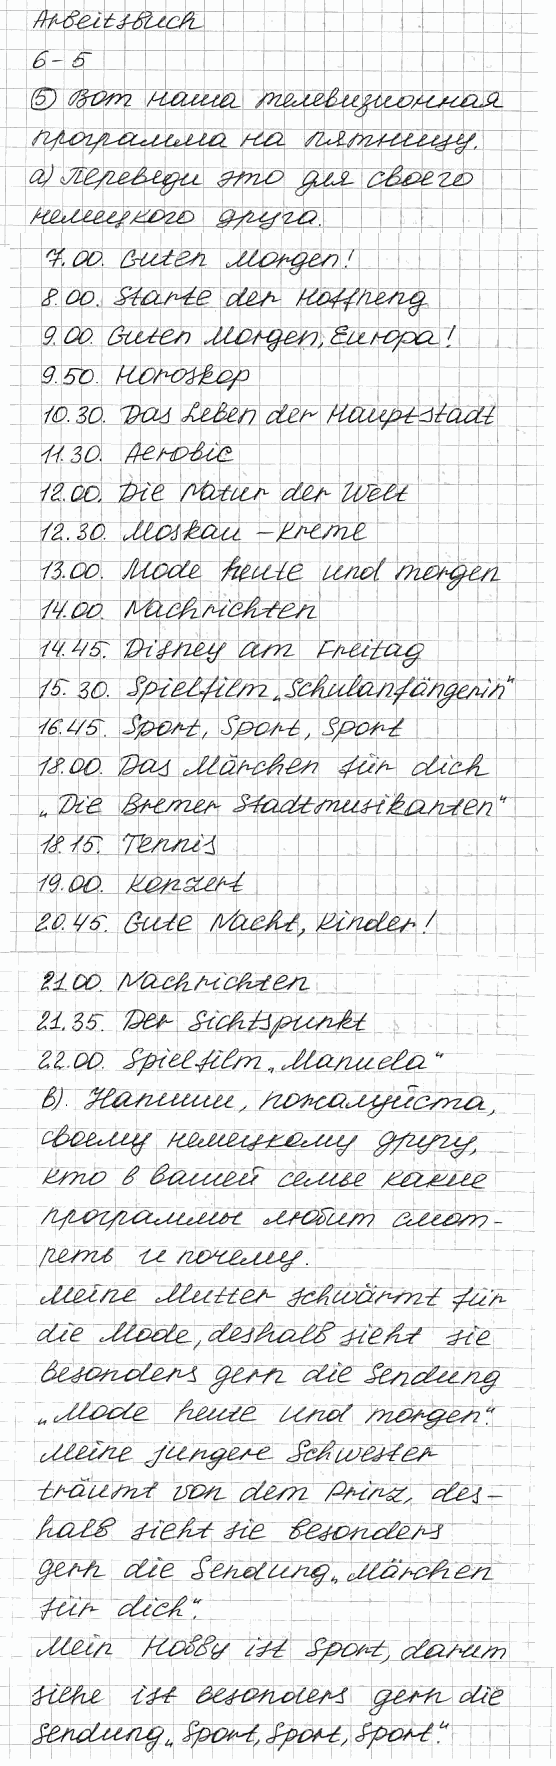 Arbeitsbuch
6-5
⑤ Вот наша телевизионная
программа на пятницу.
а) Переведи это для своего
немецкого друга.
7.00. Guten Morgen!
8.00. Starte der Hoffneng
9.00. Guten Morgen, Europa!
9.50. Horoskop
10.30. Das Leben der Hauptstadt
11.30. Aerobic
12.00. Die Natur der Welt
12.30. Moskau - Kreme
13.00. Mode heute und morgen
14.00. Nachrichten
14.45. Disney am Freitag
15.30. Spielfilm „Schulanfängerin"
16.45. Sport, Sport, Sport
18.00. Das Märchen für dich
„Die Bremer Stadtmusikanten"
18.15. Tennis
19.00. Konzert
20.45. Gute Nacht, Kinder!
21.00. Nachrichten
21.35. Der Sichtspunkt
22.00. Spielfilm „Manuela"
в). Напиши, пожалуйста,
своему немецкому другу,
кто в вашей семье какие
программы любит смот-
реть и почему.
Meine Mutter schwärmt für
die Mode, deshalb sieht sie
besonders gern die Sendung
„Mode heute und morgen".
Meine jungere Schwester
träumt von dem Prinz, des-
halb sieht sie besonders
gern die Sendung „Märchen
für dich".
Mein Hobby ist Sport, darum
siehe ist besonders gern die
Sendung „Sport, Sport, Sport".